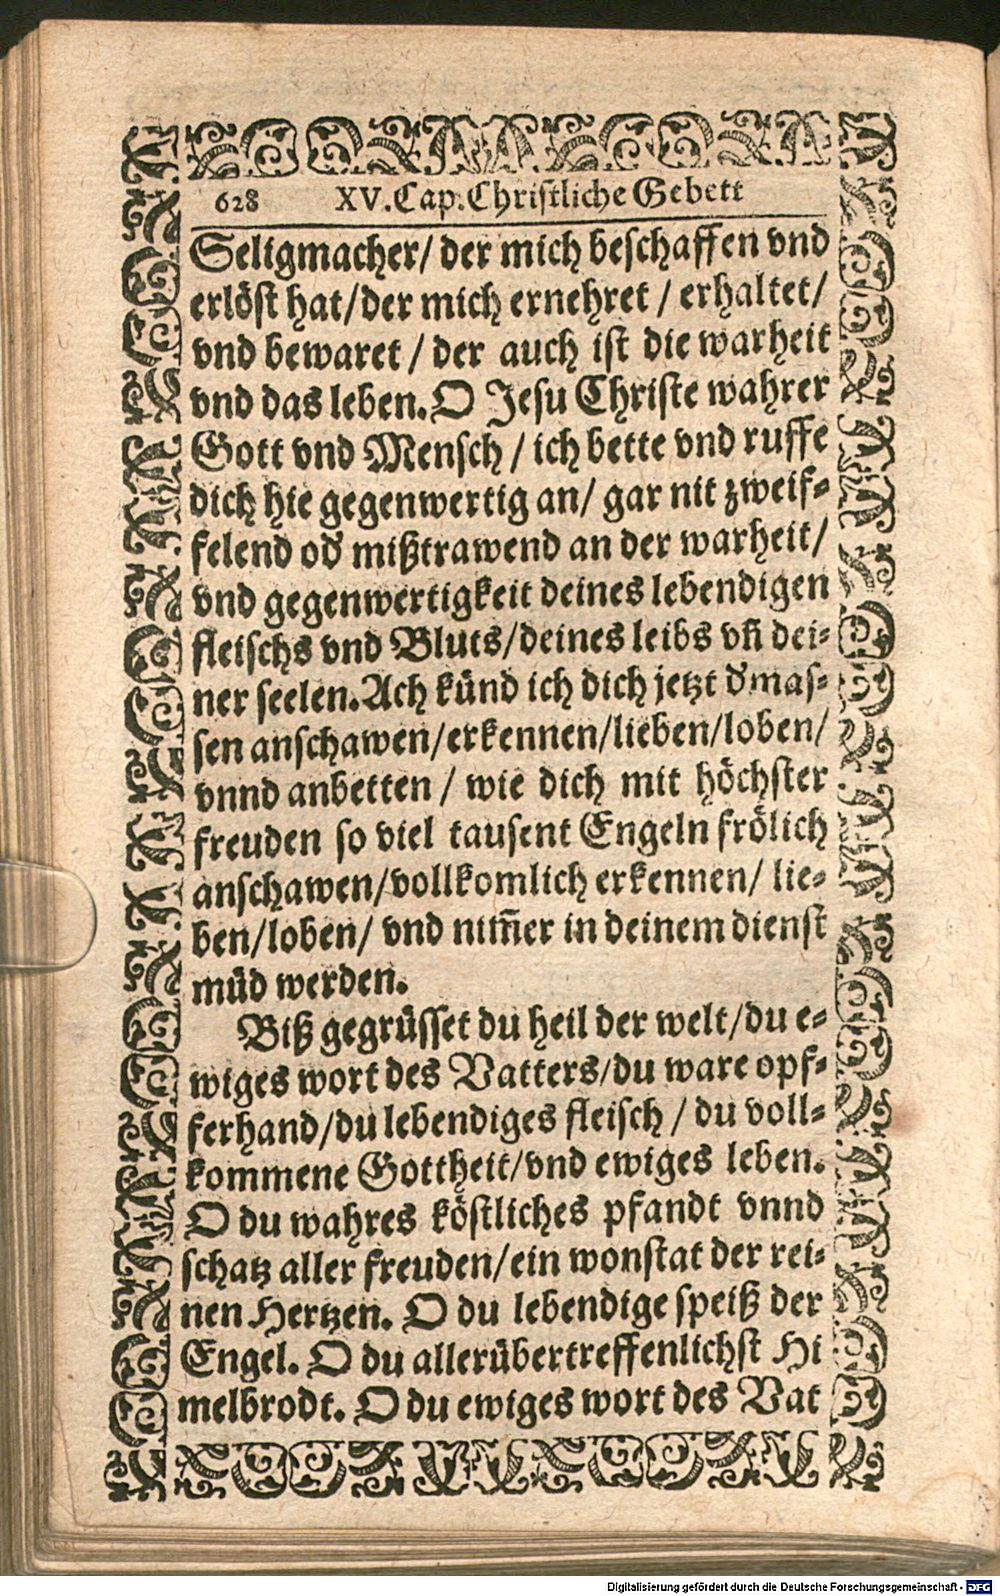 628 XV. Cap. Christliche Gebett
Seligmacher/ der mich beschaffen vnd
erlöst hat/der mich ernehret / erhaltet/
vnd bewaret / der auch ist die warheit
vnd das leben. O Jesu Christe wahrer
Gott vnd Mensch / ich bette vnd ruffe
dich hie gegenwertig an/ gar nit zweif-
felend oď mißtrawend an der warheit/
vnd gegenwertigkeit deines lebendigen
fleischs vnd Bluts/deines leibs vñ dei-
ner seelen. Ach künd ich dich jetzt ďmas-
sen anschawen/erkennen/lieben/loben/
vnnd anbetten / wie dich mit höchster
freuden so viel tausent Engeln frölich
anschawen/vollkomlich erkennen/ lie-
ben/loben/ vnd nim̃er in deinem dienst
müd werden.
Biß gegrüsset du heil der welt/du e-
wiges wort des Vatters/du ware opf-
ferhand/du lebendiges fleisch / du voll-
kommene Gottheit/vnd ewiges leben.
O du wahres köstliches pfandt vnnd
schatz aller freuden/ein wonstat der rei-
nen Hertzen. O du lebendige speiß der
Engel. O du allerübertreffenlichst Hi
melbrodt. O du ewiges wort des Vat
Digitalisierung gefördert durch die Deutsche Forschungsgemeinschaft - DFG